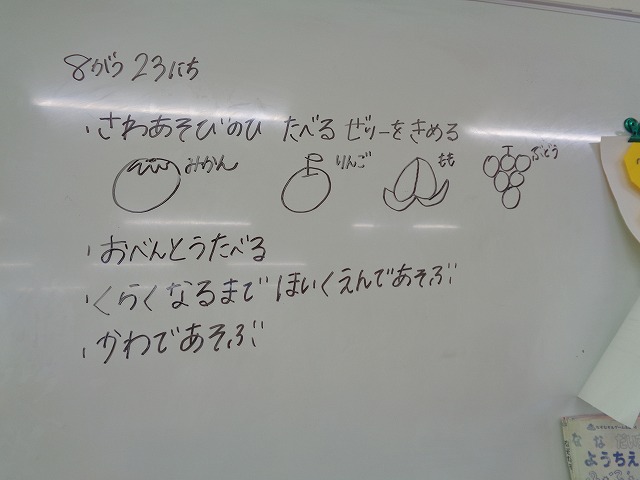 8がつ 23にち
・さわあそびのひ たべる ゼリーをきめる
みかん りんご もも ぶどう
・おべんとうたべる
・くらくなるまで ほいくえんであそぶ
・かわであそぶ
ようちえ